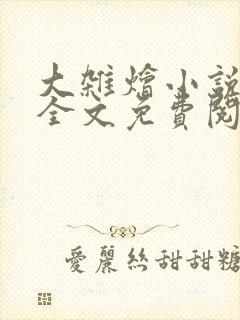 大雜燴小說
全文免費閱
愛麗絲甜甜糖